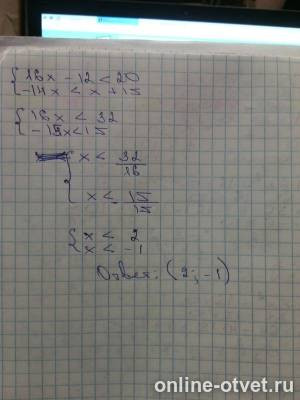 { 16x - 12 < 20
-14x < x + 15
{ 16x < 32
-15x < 15
{ x < 32/16
x < - 15/15
{ x < 2
x < -1
Ответ: (2; -1)
online-otvet.ru